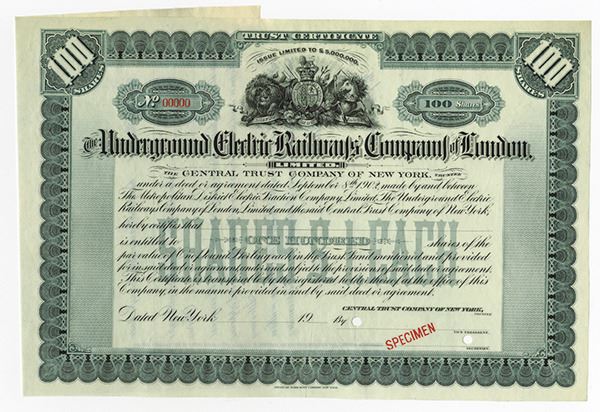 TRUST CERTIFICATE
100
SHARES
ISSUE LIMITED TO $5,000,000.
100
SHARES
No 00000
100 Shares
The Underground Electric Railways Company of London,
LIMITED.
THE CENTRAL TRUST COMPANY OF NEW YORK, TRUSTEE
under a deed or agreement dated September 8th 1902, made by and between
The Metropolitan District Electric Traction Company Limited, The Underground Electric
Railways Company of London, Limited and the said Central Trust Company of New York,
hereby certifies that
is entitled to ONE HUNDRED shares of the
par value of one pound Sterling each in the Trust Fund mentioned and provided
for in said deed or agreement under and subject to the provisions of said deed or agreement.
This Certificate is transferable by the registered holder thereof at the office of this
Company, in the manner provided in and by said deed or agreement.
CENTRAL TRUST COMPANY OF NEW YORK,
TRUSTEE
Dated New York 19 By
SPECIMEN
VICE PRESIDENT.
SECRETARY.